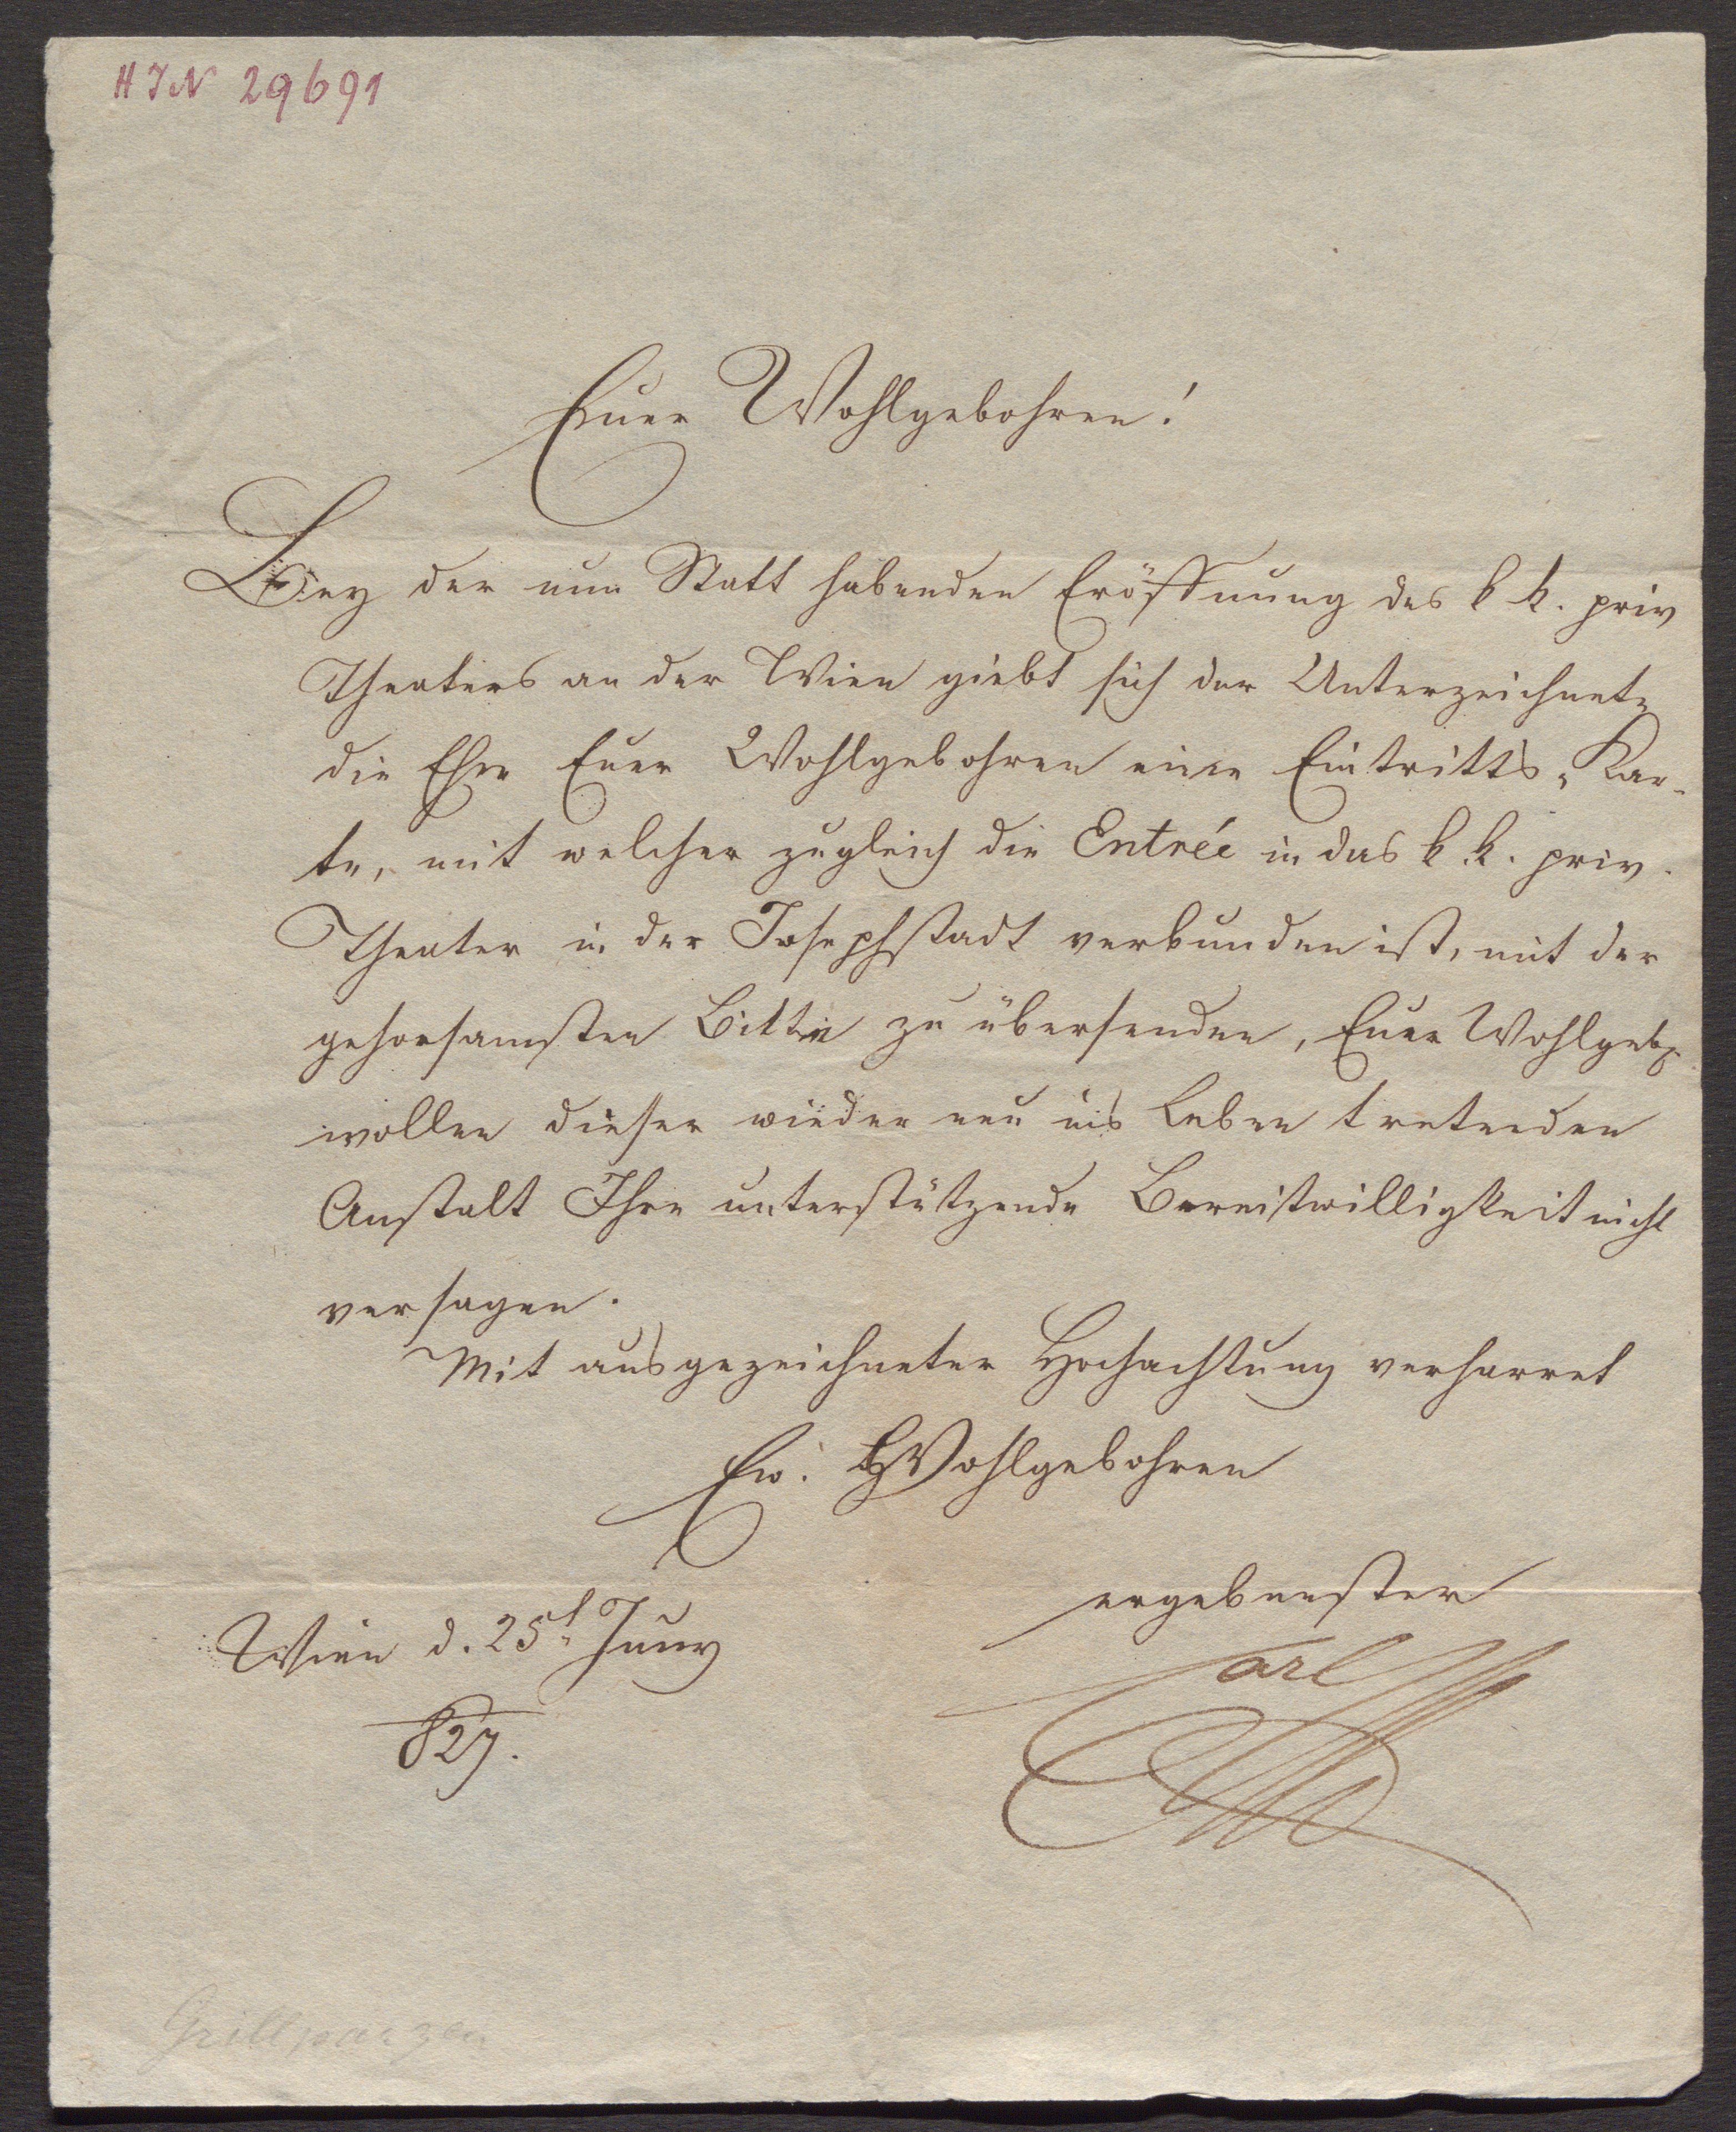 H I N 29691
Euer Wohlgebohren!
Bey der nun Statt habenden Eröffnung des k k. priv
Theaters an der Wien giebt sich der Unterzeichnete
die Ehre Euer Wohlgebohren eine Eintritts-Kar-
te, mit welcher zugleich die Entrée in das k. k. priv.
Theater in der Josephstadt verbunden ist, mit der
gehorsamsten Bitte zu übersenden, Euer Wohlgeb.
wollen dieser wieder neu ins Leben tretenden
Anstalt Ihre unterstützende Bereitwilligkeit nicht
versagen.
Mit ausgezeichneter Hochachtung verharret
Ew. Wohlgebohren
ergebenster
Wien d. 25t Juny
Carl
827.
Grillparzer